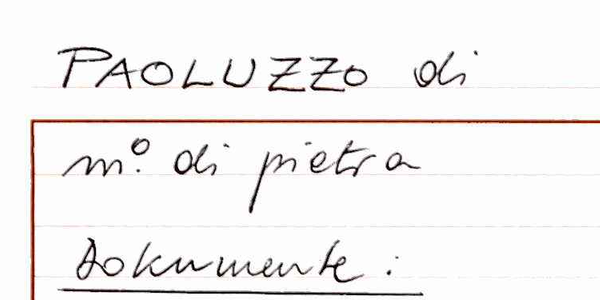 PAOLUZZO di
m.º di pietra
Dokumente: